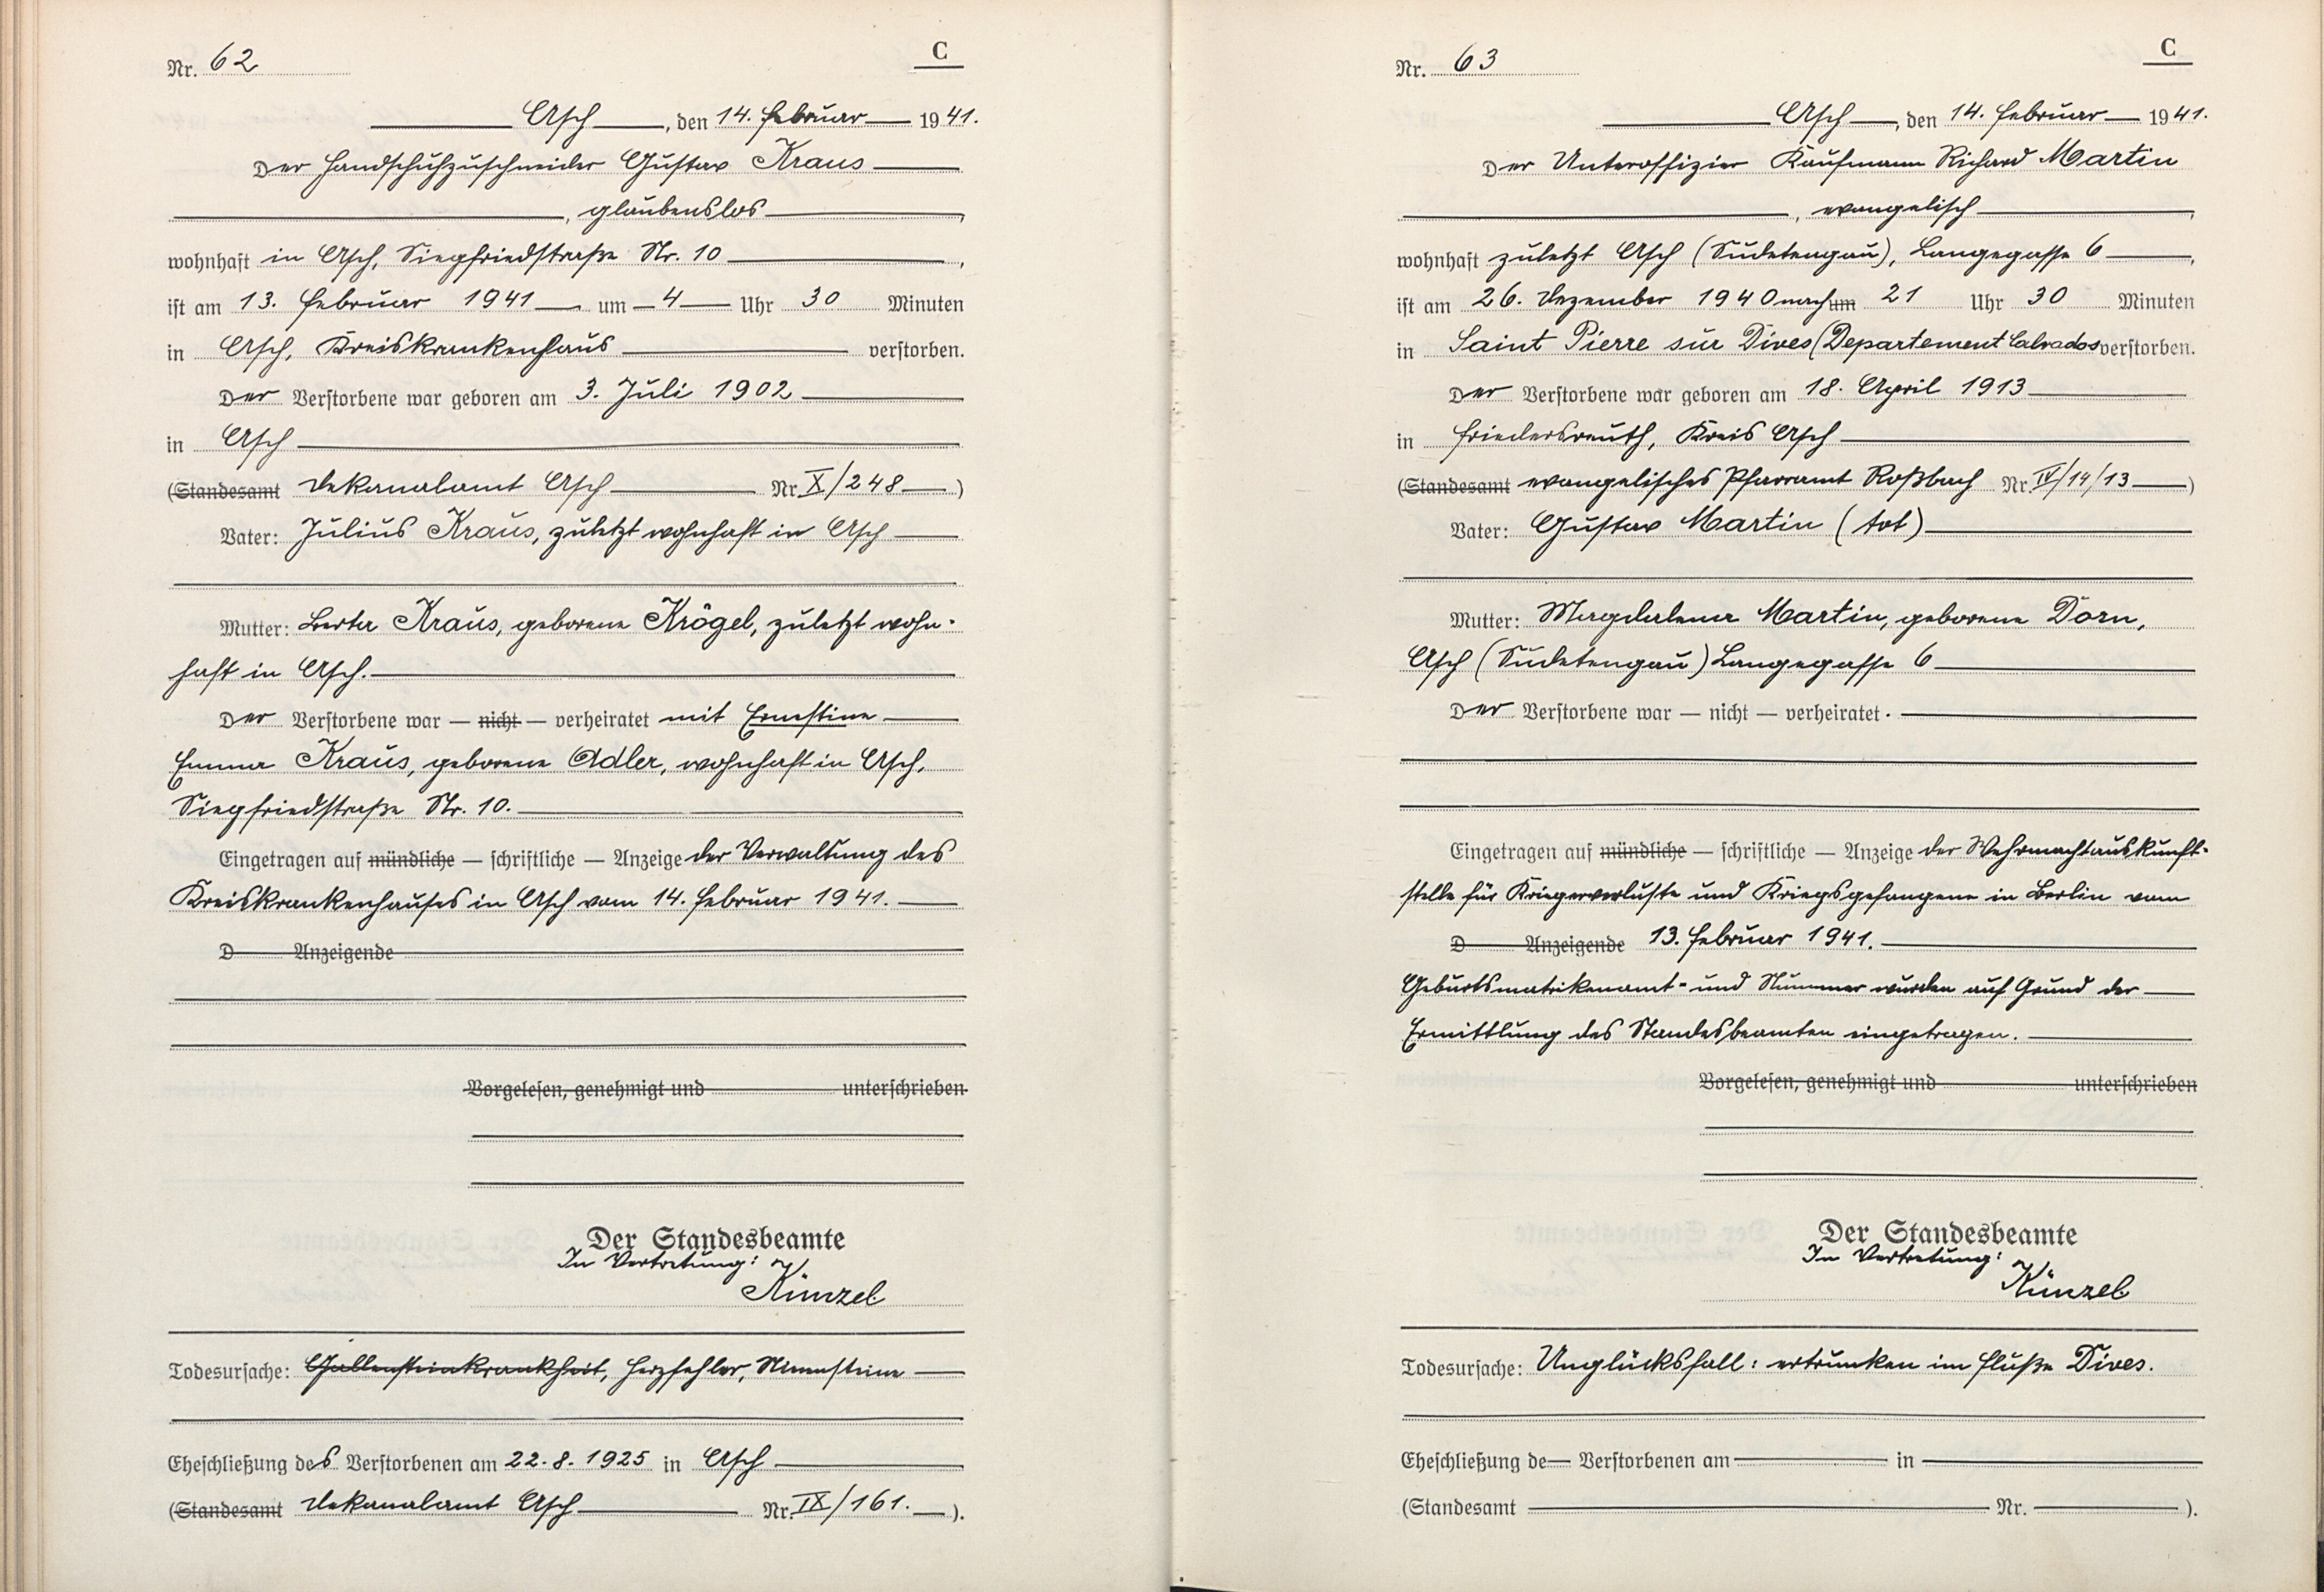 Nr. 62
C
Asch, den 14. Februar 1941.
Der Handschuhzuschneider Gustav Kraus
, glaubenslos,
wohnhaft in Asch, Siegfriedstraße Nr. 10,
ist am 13. Februar 1941 um 4 Uhr 30 Minuten
in Asch, Kreiskrankenhaus verstorben.
Der Verstorbene war geboren am 3. Juli 1902
in Asch
(Standesamt Dekanalamt Asch Nr. X/248)
Vater: Julius Kraus, zuletzt wohnhaft in Asch
Mutter: Berta Kraus, geborene Krögel, zuletzt wohn-
haft in Asch.
Der Verstorbene war — nicht — verheiratet mit Ernestine
Emma Kraus, geborene Adler, wohnhaft in Asch,
Siegfriedstraße Nr. 10.
Eingetragen auf mündliche — schriftliche — Anzeige der Verwaltung des
Kreiskrankenhauses in Asch vom 14. Februar 1941.
D Anzeigende
Vorgelesen, genehmigt und unterschrieben
Der Standesbeamte
In Vertretung:
Künzel
Todesursache: Gallensteinkrankheit, Herzfehler, Nierensteine
Eheschließung des Verstorbenen am 22.8.1925 in Asch
(Standesamt Dekanalamt Asch Nr. IX/161.).
Nr. 63
C
Asch, den 14. Februar 1941.
Der Unteroffizier Kaufmann Richard Martin
, evangelisch,
wohnhaft zuletzt Asch (Sudetengau), Langegasse 6,
ist am 26. Dezember 1940 nach um 21 Uhr 30 Minuten
in Saint Pierre sur Dives (Departement Calvados verstorben.
Der Verstorbene war geboren am 18. April 1913
in Friedersreuth, Kreis Asch
(Standesamt evangelisches Pfarramt Roßbach Nr. IV/14/13)
Vater: Gustav Martin (tot)
Mutter: Magdalena Martin, geborene Dorn,
Asch (Sudetengau) Langegasse 6
Der Verstorbene war — nicht — verheiratet.
Eingetragen auf mündliche — schriftliche — Anzeige der Wehrmachtauskunft-
stelle für Kriegerverluste und Kriegsgefangene in Berlin vom
D Anzeigende 13. Februar 1941.
Geburtsmatrikenamt- und Nummer wurden auf Grund der
Ermittlung des Standesbeamten eingetragen.
Vorgelesen, genehmigt und unterschrieben
Der Standesbeamte
In Vertretung:
Künzel
Todesursache: Unglücksfall: ertrunken im Fluße Dives.
Eheschließung de Verstorbenen am in
(Standesamt Nr. ).